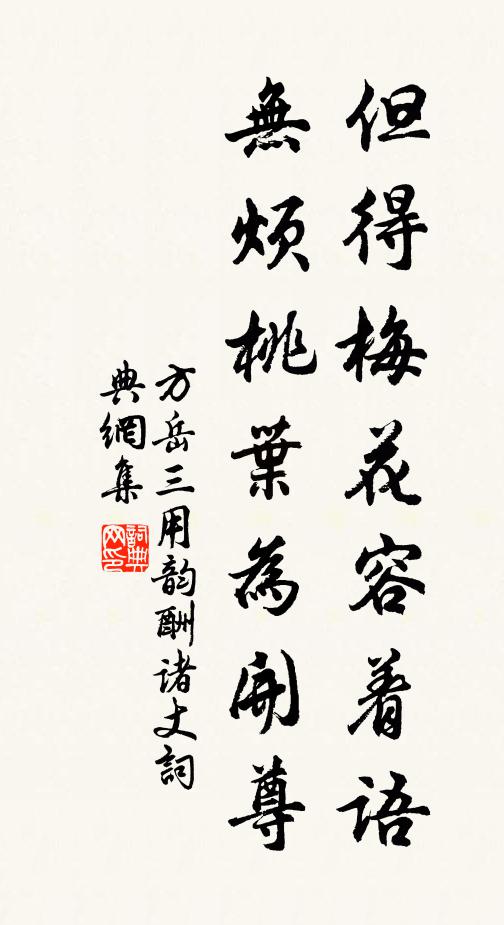 但得梅花容着语
無煩桃葉為開尊
方岳三用韵酬诸丈詞
典網集
詞典网印